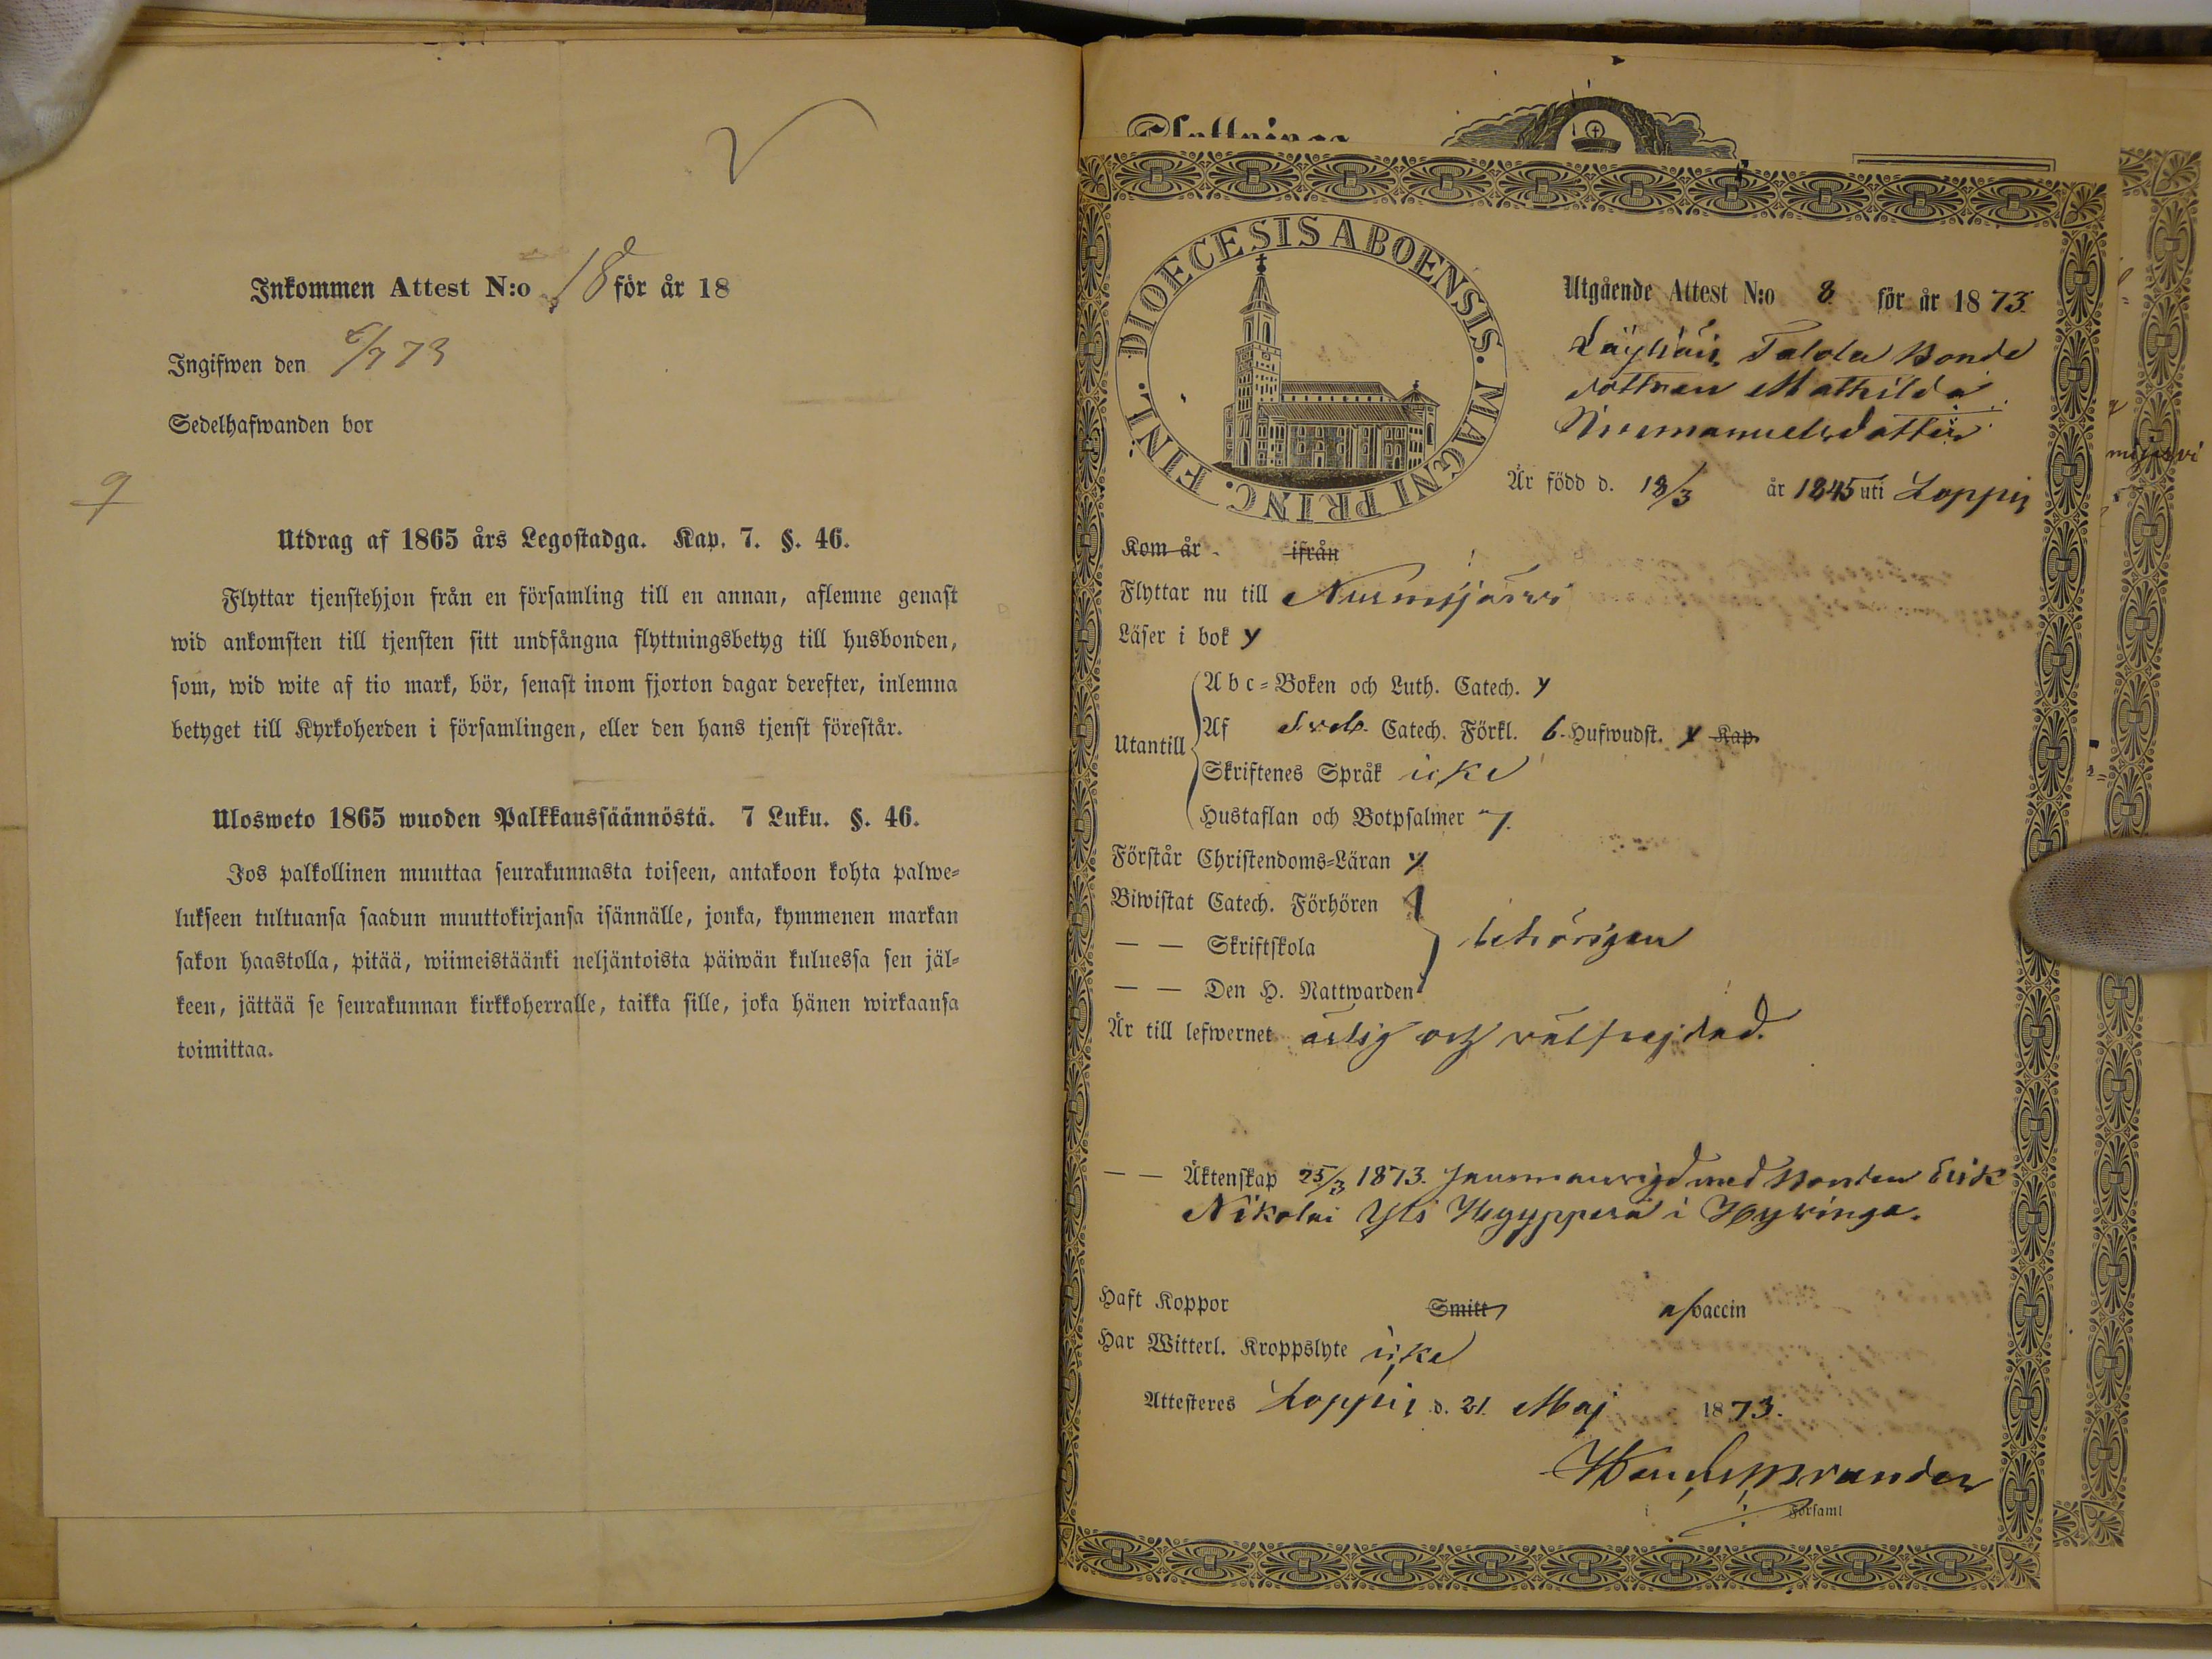 Inkommen Attest N:o 18 för år 18
Ingifwen den 6/7 73
Sedelhafwanden bor
9
Utdrag af 1865 års Legostadga. Kap. 7. §. 46.
Flyttar tjenstehjon från en församling till en annan, aflemne genast
wid ankomsten till tjensten sitt undfångna flyttningsbetyg till husbonden,
som, wid wite af tio mark, bör, senast inom fjorton dagar derefter, inlemna
betyget till Kyrkoherden i församlingen, eller den hans tjenst förestår.
Ulosweto 1865 wuoden Palkkaussäännöstä. 7 Luku. §. 46.
Jos palkollinen muuttaa seurakunnasta toiseen, antakoon kohta palwe=
lukseen tultuansa saadun muuttokirjansa isännälle, jonka, kymmenen markan
sakon haastolla, pitää, wiimeistäänki neljäntoista päiwän kuluessa sen jäl=
keen, jättää se seurakunnan kirkkoherralle, taikka sille, joka hänen wirkaansa
toimittaa.
DIOECESIS ABOENSIS. MAGNI PRINC. FINL.
Utgående Attest N:o 8 för år 1873.
Läyliäis Talola Bonde
dottren Mathilda
Immanuelsdotter
Är född d. 18/3 år 1845 uti Loppis
Kom år ifrån
Flyttar nu till Nurmijärvi
Läser i bok y
Utantill
Abc=Boken och Luth. Catech. y
Af Sveb. Catech. Förkl. 6 Hufwudst. y Kap.
Skriftenes Språk icke
Hustaflan och Botpsalmer y.
Förstår Christendoms=Läran y
Biwistat Catech. Förhören
— — Skriftskola behörigen
— — Den H. Nattwarden
Är till lefwernet ärlig och välfrejdad.
— — Äktenskap 25/3 1873. Sammanvigd med Bonden Erik
Nikolai Yli Hyyppärä i Hyvinge.
Haft Koppor Smitt vaccin
Har Witterl. Kroppslyte icke
Attesteres Loppis d. 21. Maj 1873.
Brander
i Församl